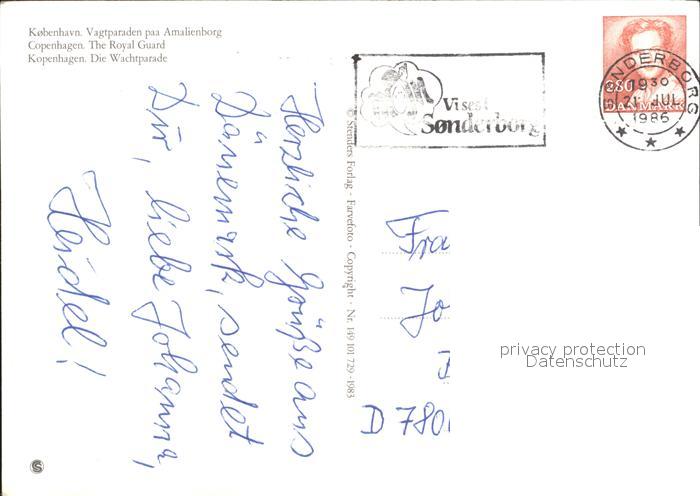 København. Vagtparaden paa Amalienborg
Copenhagen. The Royal Guard
Kopenhagen. Die Wachtparade
Herzliche Grüße aus
Dänemark, sendet
Dir, liebe Johanna,
Heidel!
© Stenders Forlag - Farvefoto - Copyright - Nr. 149 101 729 - 1983
Vi ses i
Sønderborg
280
DANMARK
SØNDERBORG
1930
21. JUL.
1986
Fra
Jo
D 780
privacy protection
Datenschutz
S